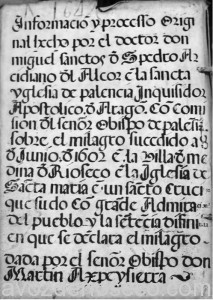 Informacio y processo Origi
nal hecho por el doctor don
miguel santos y Sā pedro Ar
cidiano đl Alcor ē la sancta
yglesia de palencia inquisidor
Apostolico. đ Aragō. Cō Comi
sion đl señor Obispo de palēcia
sobre. el milagro succedido a 8
đ Junio. đ 1602 ē la villa đ me
dina đ Rioseco ē la Iglesia de
Sācta maria ē un sācto Cruci-
que sudo Cō grāde Admira
del pueblo. y la sētēcia difini
en que se declara el milagro.
dada por el señor Obispo don
Martin Axpe y sierra